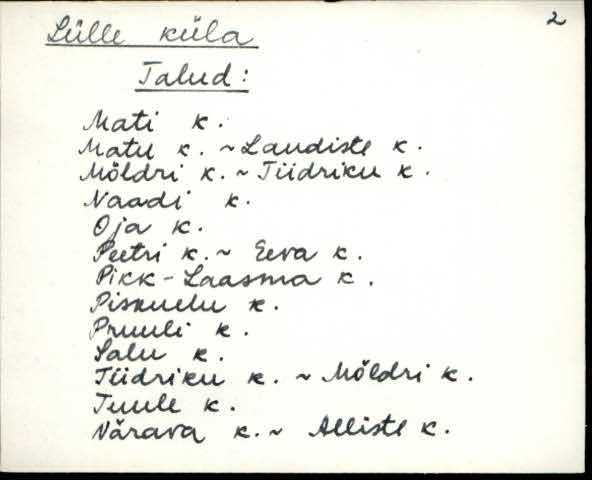 2
Lülle küla
Talud:
Mati k.
Matu k. ~ Laudiste k.
Möldri k. ~ Tiidriku k.
Naadi k.
Oja k.
Peetri k. ~ Eeva k.
Pikk-Laasma k.
k.
Pruuli k.
Salu k.
Tiidriku k. ~ Möldri k.
Tuule k.
Värava k. ~ Alliste k.